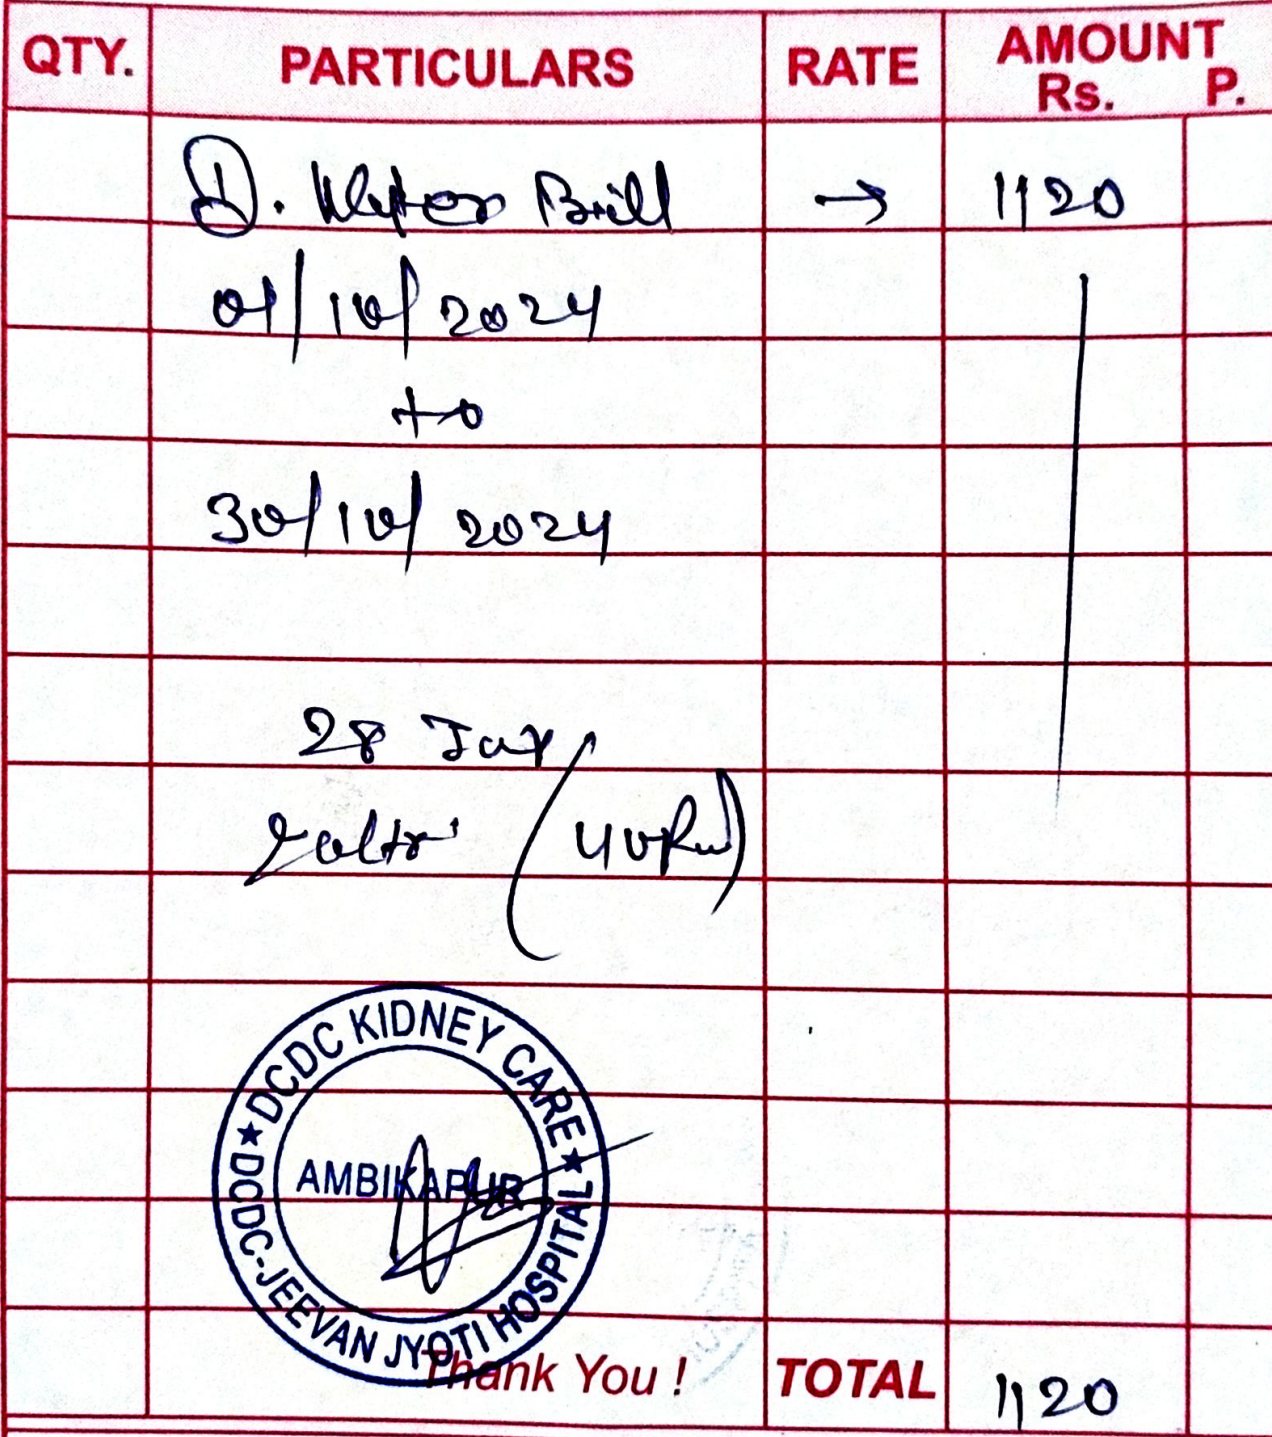 QTY. PARTICULARS RATE AMOUNT
Rs. P.
D. Water Brill → 1120
01/10/2024
to
30/10/2024
28 Jar
(40
DCDC KIDNEY CARE
AMBIKAPUR
DCDC-JEEVAN JYOTI HOSPITAL
Thank You ! TOTAL 1120